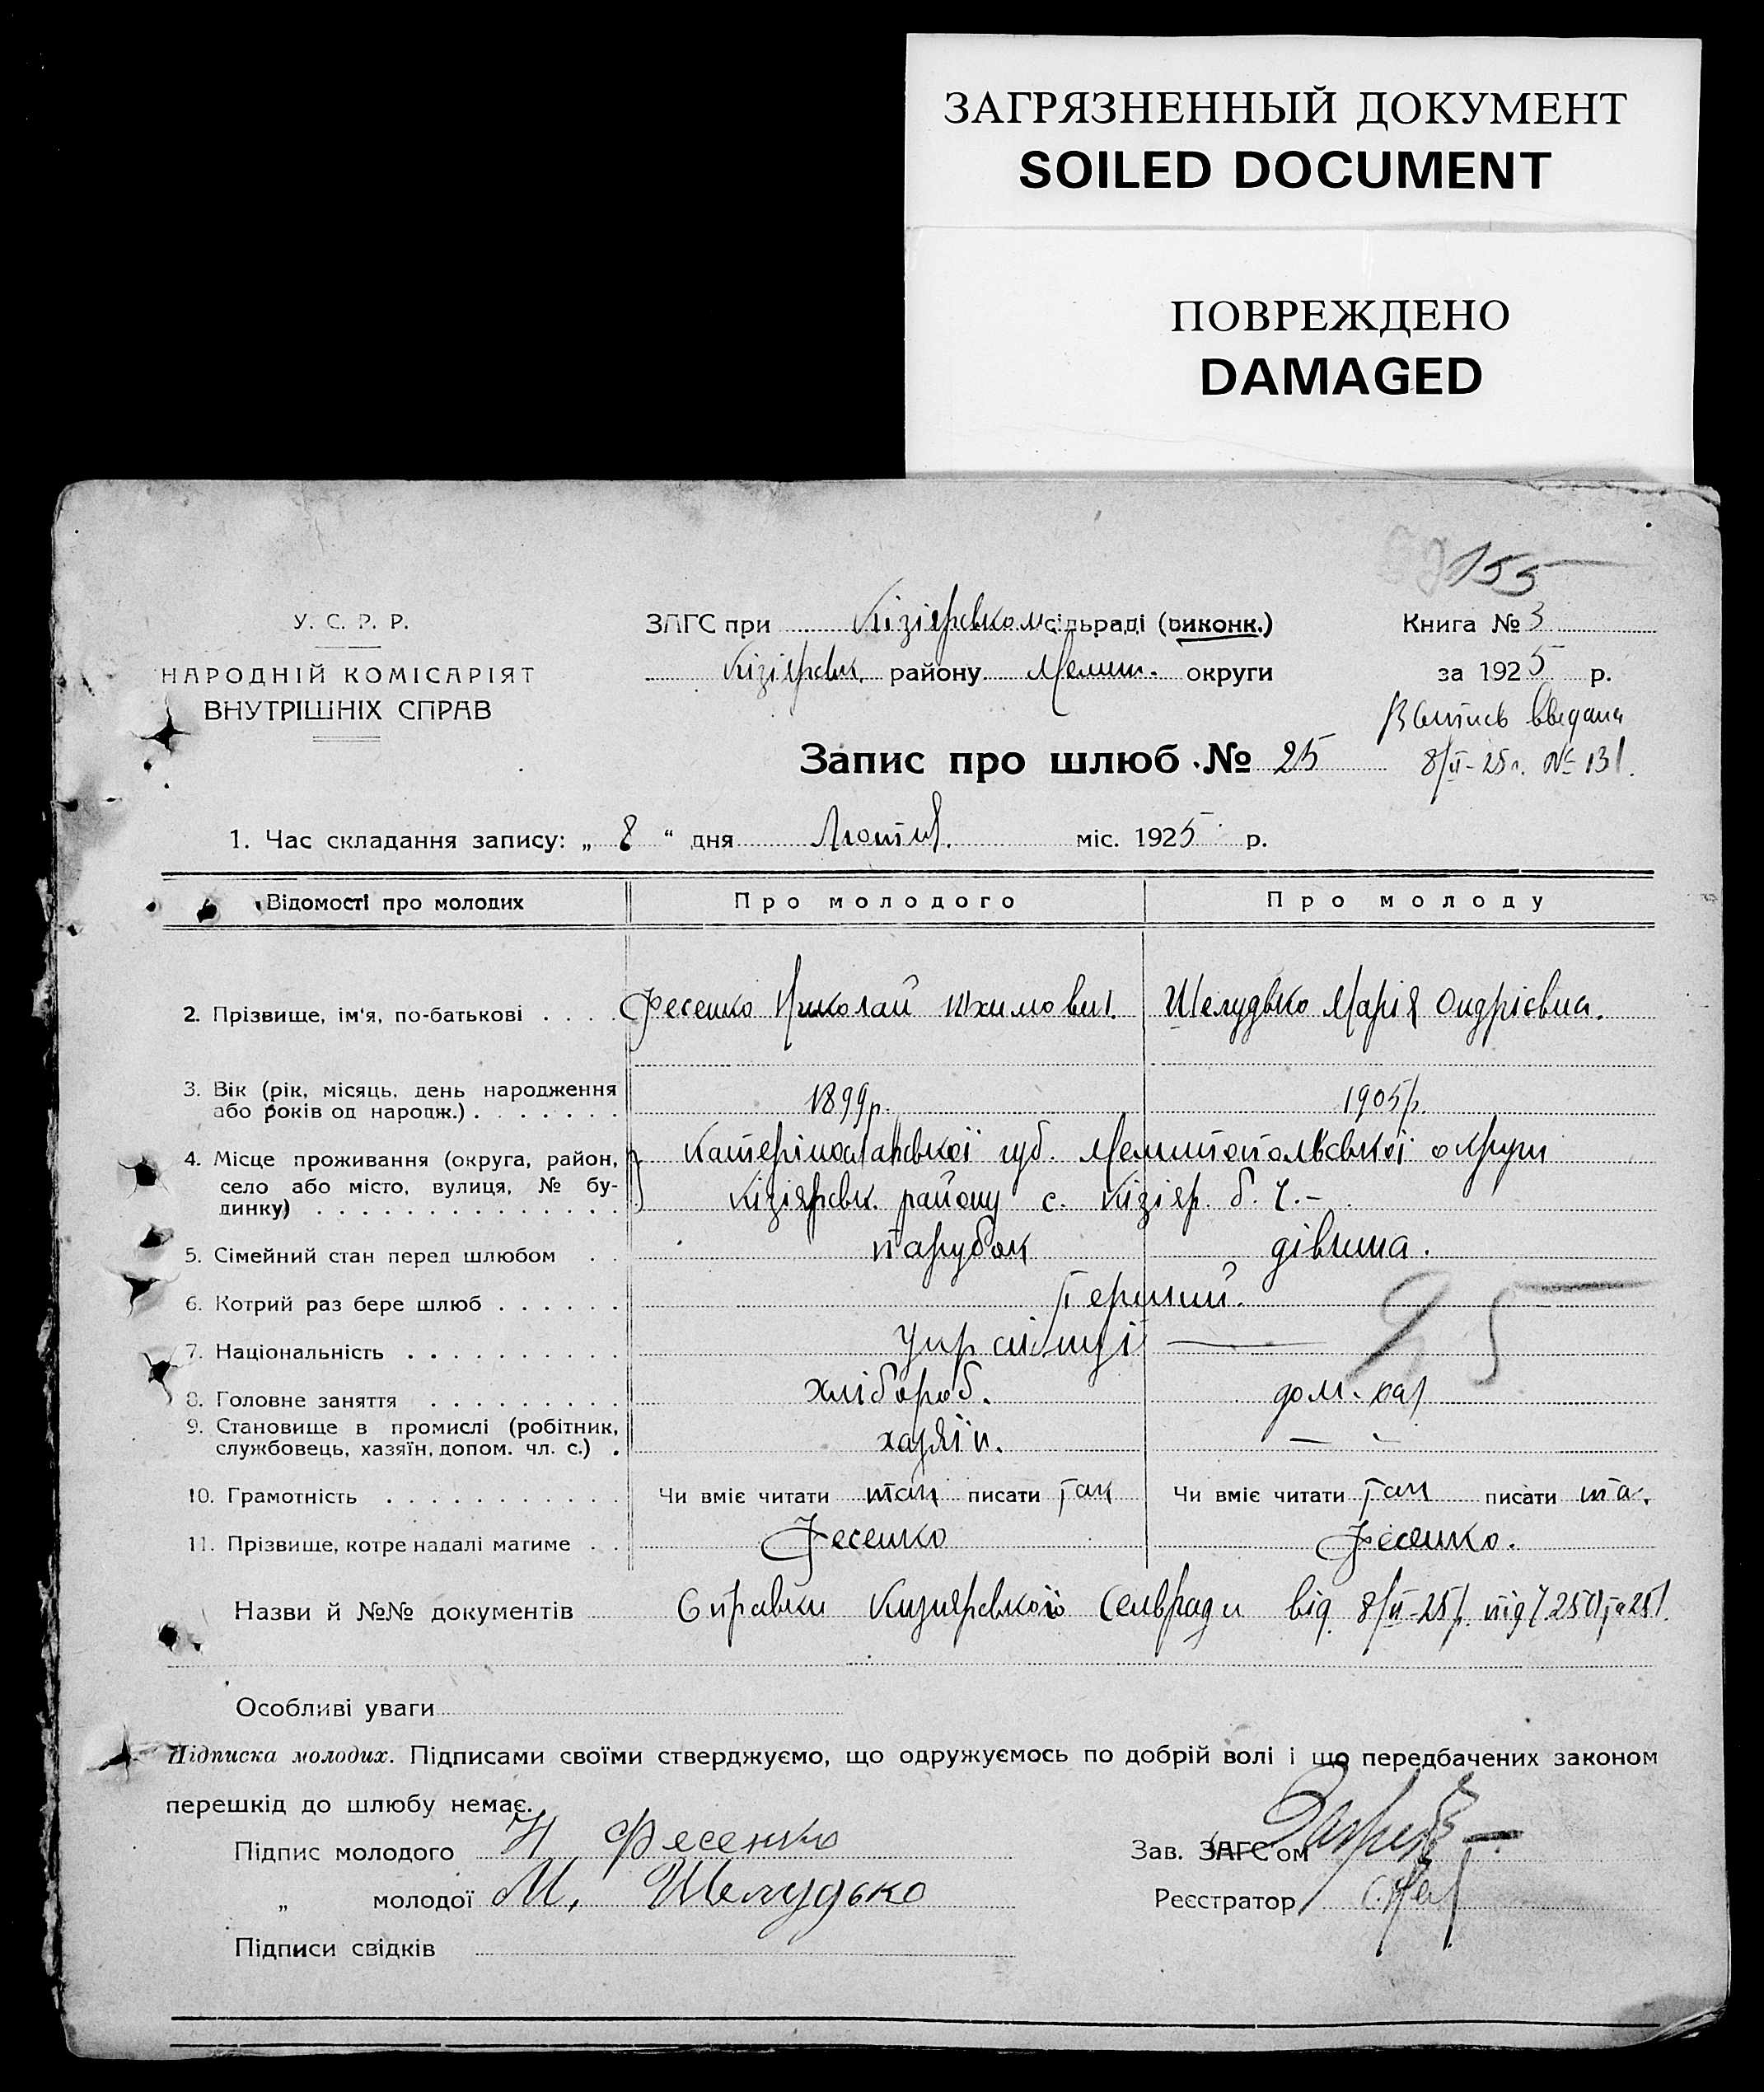 ЗАГРЯЗНЕННЫЙ ДОКУМЕНТ
SOILED DOCUMENT
ПОВРЕЖДЕНО
DAMAGED
155
У. С. Р. Р.
НАРОДНІЙ КОМІСАРІЯТ
ВНУТРІШНІХ СПРАВ
ЗАГС при Кізіярвском сільраді (виконк.)
Кізіярвск. району Мелит. округи
Книга № 3
за 1925 р.
8/II-25 г. № 131.
Запис про шлюб № 25
1. Час складання запису: „ 8 “ дня Лютня. міс. 1925 р.
Відомості про молодих Про молодого Про молоду
2. Прізвище, ім'я, по-батькові . . . . Фесенко Николай Юхимович. Шелудько Марія Ондрієвна.
3. Вік (рік, місяць, день народження 1899р. 1905р.
або років од народж.) . . . . . . .
4. Місце проживання (округа, район, губ. Мелитопольської округи
село або місто, вулиця, № бу- Кізіярвск. району с. Кізіяр. б. ч. -
динку) . . . . . . . . . . . . . .
5. Сімейний стан перед шлюбом . . парубок дівчина.
6. Котрий раз бере шлюб . . . . . . Перший.
25
7. Національність . . . . . . . . . . Украінці —
8. Головне заняття . . . . . . . . . хлібороб. дом. хаз
9. Становище в промислі (робітник, хазяїн. — -
службовець, хазяїн, допом. чл. с.) .
10. Грамотність . . . . . . . . . . . Чи вміє читати так писати так Чи вміє читати так писати та.
11. Прізвище, котре надалі матиме . . Фесенко Фесенко.
Назви й №№ документів Справки Кизиярської Сельради від 8/II-25р. під
Особливі уваги
Підписка молодих. Підписами своїми стверджуємо, що одружуємось по добрій волі і що передбачених законом
перешкід до шлюбу немає.
Підпис молодого Н Фесенко
Зав. ЗАГС'ом
„ молодої М. Шелудько
Реєстратор
Підписи свідків